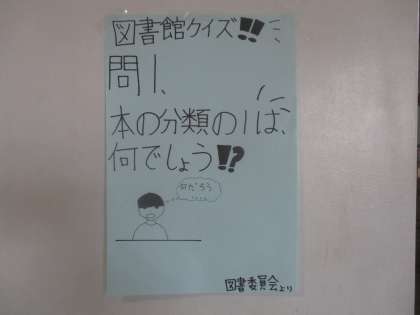 図書館クイズ!!
問1、
本の分類の1は、
何でしょう!?
何だろう
……
図書委員会より